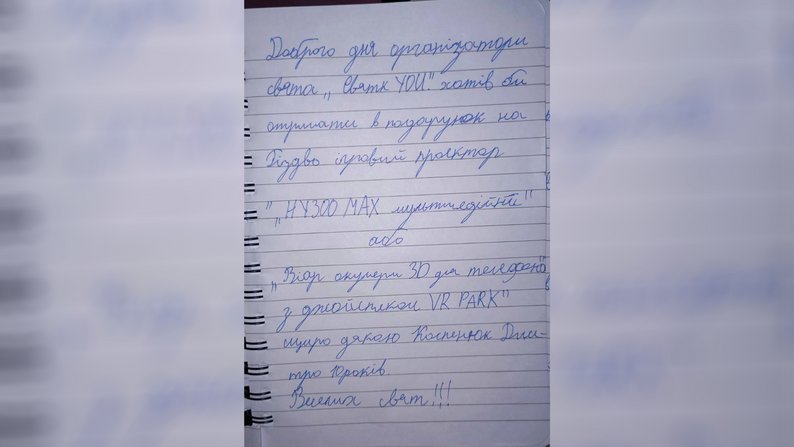 Доброго дня організатори
свята „Святк YOU." хотів би
отримати в подарунок на
Різдво ігровий проєктор
"„HY300 MAX мультимедійний"
або
„Віар окуляри 3D для телефона"
з джойстиком VR PARK"
щиро дякую Костенюк Дми-
тро 10 років.
Веселих свят!!!